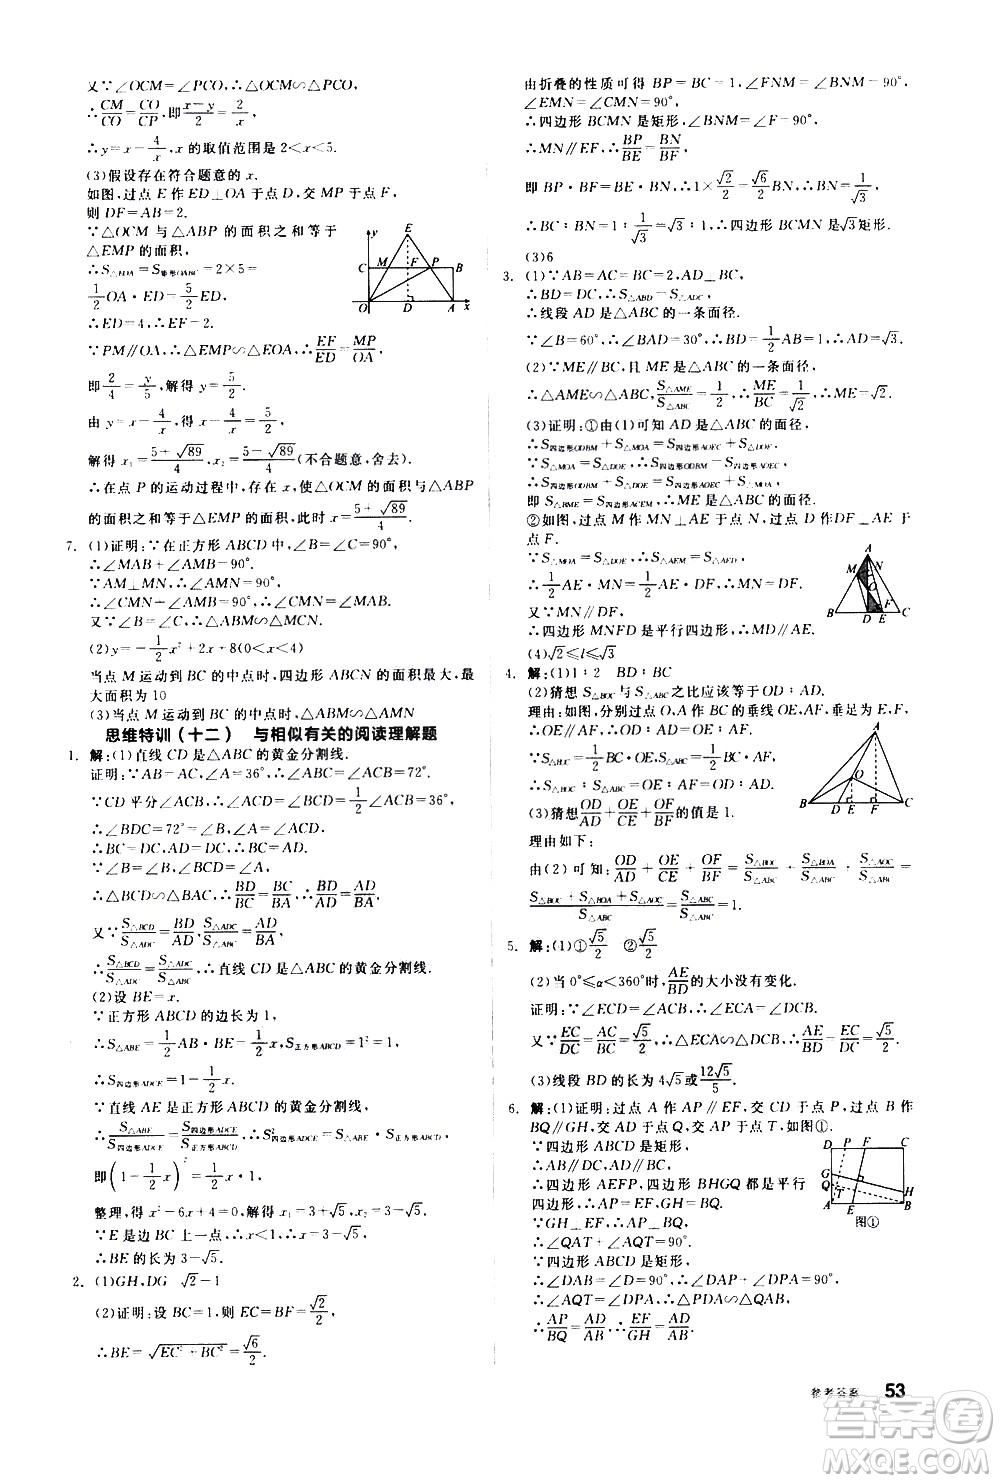 又∵∠OCM=∠PCO,∴△OCM∽△PCO,
∴CM/CO=CO/CP,即(x-y)/2=2/x,
∴y=x-4/x,x的取值范围是2<x<5.
(3)假设存在符合题意的x.
如图,过点E作ED⊥OA于点D,交MP于点F,
则DF=AB=2.
∵△OCM与△ABP的面积之和等于
△EMP的面积,
∴S△EOA=S矩形OABC=2×5=
1/2 OA·ED=5/2 ED,
∴ED=4,∴EF=2.
∵PM∥OA,∴△EMP∽△EOA,∴EF/ED=MP/OA,
即2/4=y/5,解得y=5/2,
由y=x-4/x,得x-4/x=5/2,
解得x₁=(5+√89)/4,x₂=(5-√89)/4(不合题意,舍去).
∴在点P的运动过程中,存在x,使△OCM与△ABP
的面积之和等于△EMP的面积,此时x=(5+√89)/4.
7. (1)证明:∵在正方形ABCD中,∠B=∠C=90°,
∴∠MAB+∠AMB=90°.
∵AM⊥MN,∴∠AMN=90°,
∴∠CMN+∠AMB=90°,∴∠CMN=∠MAB.
又∵∠B=∠C,∴△ABM∽△MCN.
(2)y=-1/2 x²+2x+8(0<x<4)
当点M运动到BC的中点时,四边形ABCN的面积最大,最
大面积为10
(3)当点M运动到BC的中点时,△ABM∽△AMN
思维特训(十二) 与相似有关的阅读理解题
1. 解:(1)直线CD是△ABC的黄金分割线.
证明:∵AB=AC,∠A=36°,∴∠B=∠ACB=72°.
∵CD平分∠ACB,∴∠DCB=1/2∠ACB=36°,
∴∠BDC=72°=∠B,∴BC=CD.
∵∠B=∠B,∠BCD=∠A,
∴△BCD∽△BAC,∴BD/BC=BC/BA,∴BD/AD=AD/BA.
又∵S△BCD/S△ADC=BD/AD,S△ADC/S△ABC=AD/BA,
∴S△BCD/S△ADC=S△ADC/S△ABC,∴直线CD是△ABC的黄金分割线.
(2)设BE=x.
∵正方形ABCD的边长为1,
∴S△ABE=1/2 AB·BE=1/2 x,S正方形ABCD=1²=1,
∴S四边形ADCE=1-1/2 x.
∵直线AE是正方形ABCD的黄金分割线,
∴S△ABE/S四边形ADCE=S四边形ADCE/S正方形ABCD,∴S²四边形ADCE=S△ABE·S正方形ABCD,
即(1-1/2 x)²=1/2 x·1,
整理,得x²-6x+4=0,解得x₁=3+√5,x₂=3-√5.
∵E是边BC上一点,∴x<1,∴x=3-√5,
∴BE的长为3-√5.
2. (1)GH,DG √2-1
(2)证明:设BC=1,则EC=BF=√2/2,
∴BE=√(EC²+BC²)=√6/2.
由折叠的性质可得BP=BC=1,∠FNM=∠BNM=90°,
∠EMN=∠CMN=90°.
∴四边形BCMN是矩形,∠BNM=∠F=90°,
∴MN∥EF,∴BP/BE=BN/BF,
即BP·BF=BE·BN,∴1×√2/2=√6/2 BN,∴BN=1/√3,
∴BC∶BN=1∶1/√3=√3∶1,∴四边形BCMN是√3矩形.
(3)6
3. (1)∵AB=AC=BC=2,AD⊥BC,
∴BD=DC,∴S△ABD=S△ADC,
∴线段AD是△ABC的一条面径.
∵∠B=60°,∴∠BAD=30°,∴BD=1/2 AB=1,∴AD=√3.
(2)∵ME∥BC,且ME是△ABC的一条面径,
∴△AME∽△ABC,S△AME/S△ABC=1/2,∴ME/BC=1/√2,∴ME=√2.
(3)证明:①由(1)可知AD是△ABC的面径,
∴S四边形ODBM+S△MOA=S四边形AOEC+S△DOE.
∵S△MOA=S△DOE,∴S四边形ODBM+S△DOE=S四边形AOEC+S△MOA,
即S△BME=S四边形ACEM,∴ME是△ABC的面径.
②如图,过点M作MN⊥AE于点N,过点D作DF⊥AE于
点F.
∵S△MOA=S△DOE,∴S△AEM=S△AED,
∴1/2 AE·MN=1/2 AE·DF,∴MN=DF.
又∵MN∥DF,
∴四边形MNFD是平行四边形,∴MD∥AE.
(4)√2≤l≤√3
4. 解:(1)1∶2 BD∶BC
(2)猜想S△BOC与S△ABC之比应该等于OD∶AD.
理由:如图,分别过点O,A作BC的垂线OE,AF,垂足为E,F,
∴OE∥AF,∴OD∶AD=OE∶AF.
∵S△BOC=1/2 BC·OE,S△ABC=1/2 BC·AF,
∴S△BOC∶S△ABC=OE∶AF=OD∶AD.
(3)猜想OD/AD+OE/CE+OF/BF的值是1.
理由如下:
由(2)可知,OD/AD+OE/CE+OF/BF=S△BOC/S△ABC+S△BOA/S△ABC+S△AOC/S△ABC=
(S△BOC+S△BOA+S△AOC)/S△ABC=S△ABC/S△ABC=1.
5. 解:(1)①√5/2 ②√5/2
(2)当0°≤α<360°时,AE/BD的大小没有变化.
证明:∵∠ECD=∠ACB,∴∠ECA=∠DCB.
又∵EC/DC=AC/BC=√5/2,∴△ECA∽△DCB,∴AE/BD=EC/DC=√5/2.
(3)线段BD的长为4√5或12√5/5.
6. 解:(1)证明:过点A作AP∥EF,交CD于点P,过点B作
BQ∥GH,交AD于点Q,交AP于点T,如图①.
∵四边形ABCD是矩形,
∴AB∥DC,AD∥BC,
∴四边形AEFP,四边形BHGQ是平行
四边形,∴AP=EF,GH=BQ.
∵GH⊥EF,∴AP⊥BQ,
∴∠QAT+∠AQT=90°.
∵四边形ABCD是矩形,
∴∠DAB=∠D=90°,∴∠DAP+∠DPA=90°,
∴∠AQT=∠DPA,∴△PDA∽△QAB,
∴AP/BQ=AD/AB,∴EF/GH=AD/AB.
图①
参考答案 53
答案圈
MXQE.COM